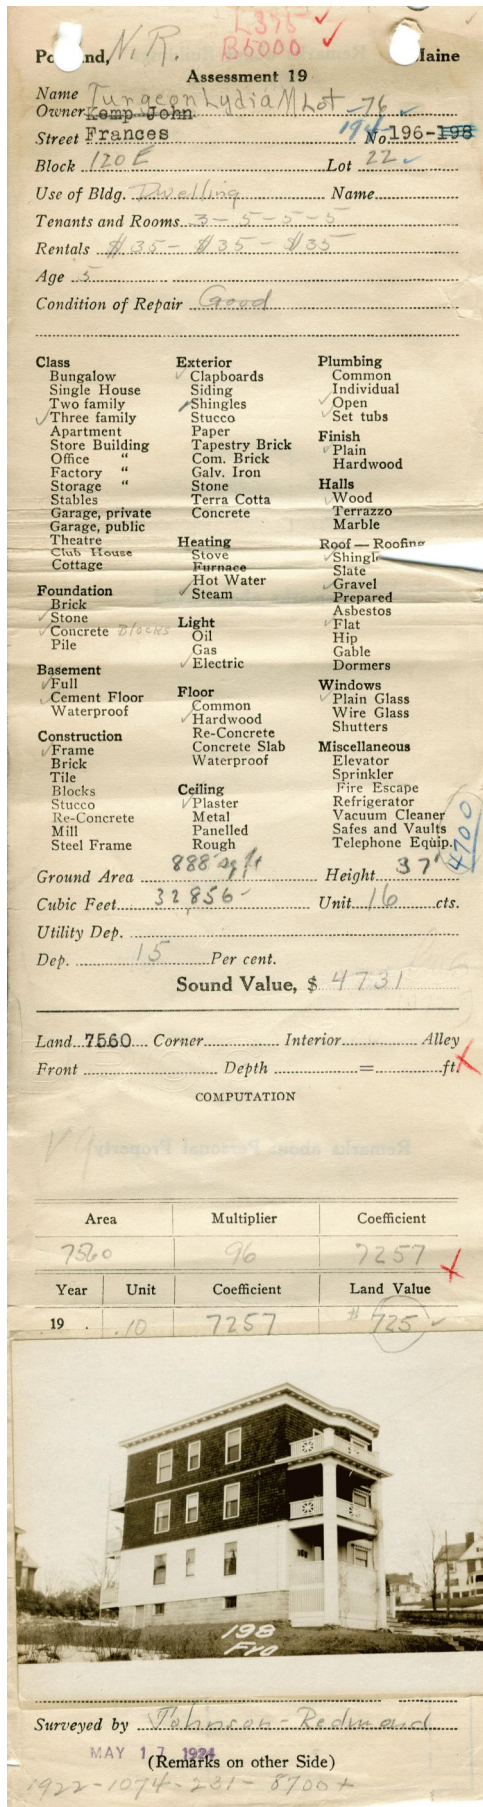 N.R. L375
B5000
Po nd, Maine
Assessment 19
Name Turgeon Lydia M Lot - 76
Owner Kemp John
194
Street Frances No. 196-198
Block 120E Lot 22
Use of Bldg. Dwelling Name
Tenants and Rooms 3 - 5 - 5 - 5
Rentals $35 - $35 - $35
Age 5
Condition of Repair Good
Class
Bungalow
Single House
Two family
Three family
Apartment
Store Building
Office "
Factory "
Storage "
Stables
Garage, private
Garage, public
Theatre
Club House
Cottage
Foundation
Brick
Stone
Concrete Blocks
Pile
Basement
Full
Cement Floor
Waterproof
Construction
Frame
Brick
Tile
Blocks
Stucco
Re-Concrete
Mill
Steel Frame
Exterior
Clapboards
Siding
Shingles
Stucco
Paper
Tapestry Brick
Com. Brick
Galv. Iron
Stone
Terra Cotta
Concrete
Heating
Stove
Furnace
Hot Water
Steam
Light
Oil
Gas
Electric
Floor
Common
Hardwood
Re-Concrete
Concrete Slab
Waterproof
Ceiling
Plaster
Metal
Panelled
Rough
Plumbing
Common
Individual
Open
Set tubs
Finish
Plain
Hardwood
Halls
Wood
Terrazzo
Marble
Roof — Roofing
Shingle
Slate
Gravel
Prepared
Asbestos
Flat
Hip
Gable
Dormers
Windows
Plain Glass
Wire Glass
Shutters
Miscellaneous
Elevator
Sprinkler
Fire Escape
Refrigerator
Vacuum Cleaner
Safes and Vaults
Telephone Equip.
4700
Ground Area 888 sq ft Height 37'
Cubic Feet 32,856 - Unit 16 cts.
Utility Dep.
Dep. 15 Per cent.
Sound Value, $ 4731
Land 7560 Corner Interior Alley
Front Depth = ft.
COMPUTATION
Remarks about Personal Property
Area Multiplier Coefficient
7560 96 7257
Year Unit Coefficient Land Value
19 . .10 7257 $ 725
198
Fro
Surveyed by Johnson - Redmond
MAY 17 1924
(Remarks on other Side)
1922-1074-231-8700+